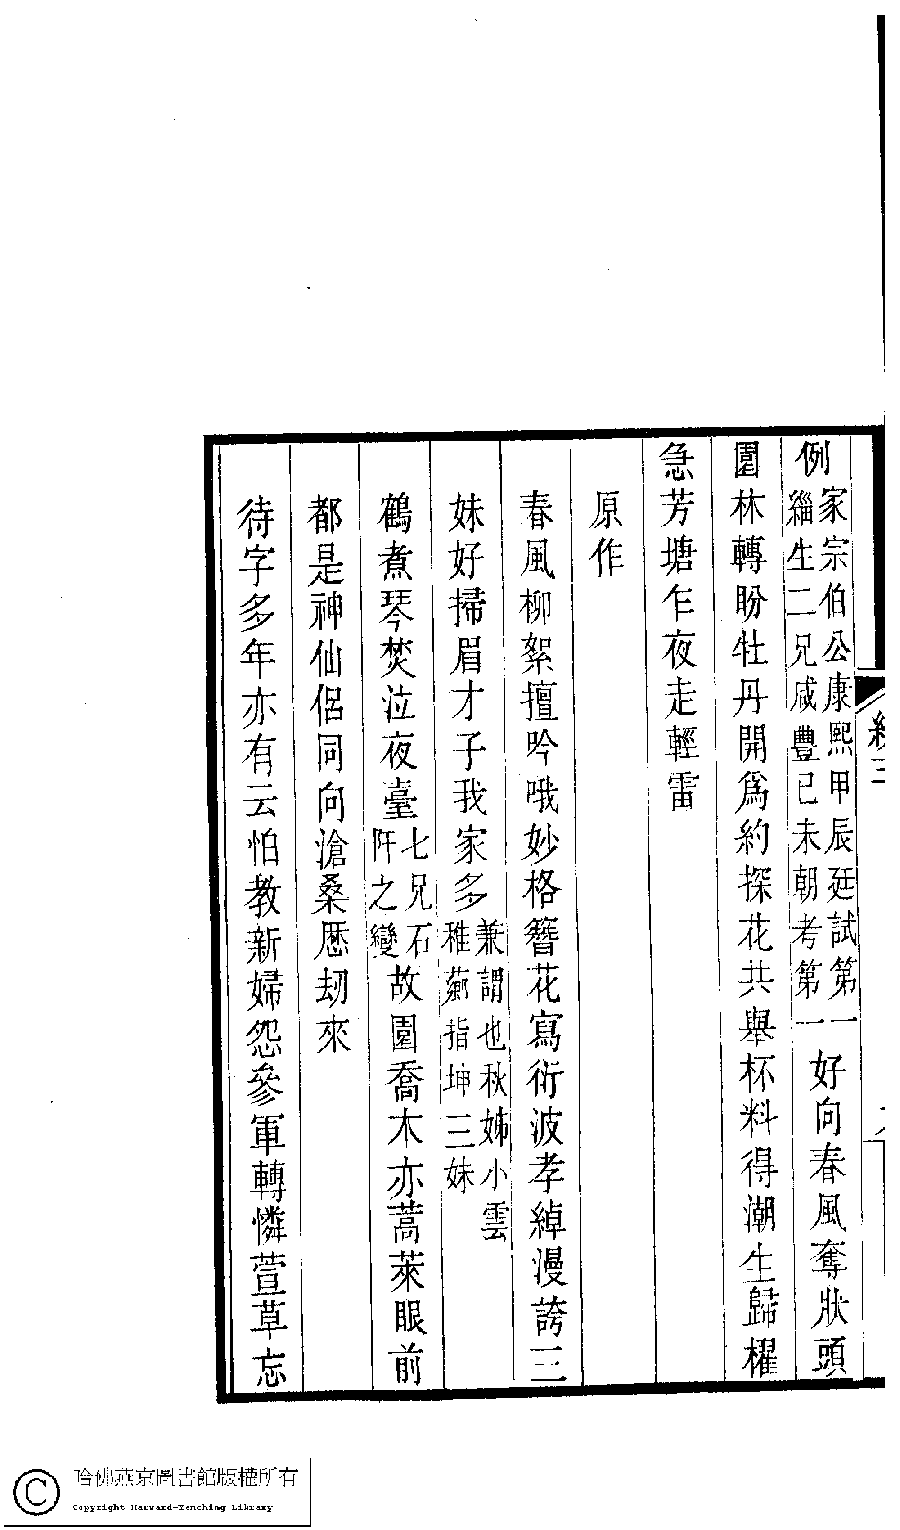 例家宗伯公康熙甲辰廷試第一緇生二兄咸豐己未朝考第一好向春風奪狀頭
園林轉盼牡丹開爲約探花共舉杯料得潮生歸櫂
急芳塘乍夜走輕雷
原作
春風柳絮擅吟哦妙格簪花寫衍波孝綽漫誇三
妹好掃眉才子我家多兼謂也秋姊小雲稚蘅指坤三妹
鶴煮琴焚泣夜臺七兄石阡之變故園喬木亦蒿萊眼前
都是神仙侶同向滄桑歷刼來
待字多年亦有云怕教新婦怨參軍轉憐萱草忘
三
哈佛燕京圖書館版權所有
Copyright Harvard-Yenching Library